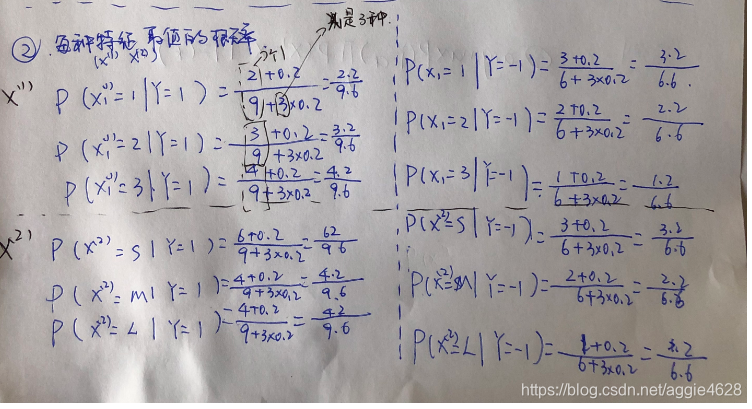 就是3种.
② 每种特征 取值的概率
(x⁽¹⁾ x⁽²⁾) 个
x⁽¹⁾ P (x₁⁽¹⁾=1 | Y=1) = (2+0.2)/(9+3×0.2) = 2.2/9.6
P (x₁⁽¹⁾=2 | Y=1) = (3+0.2)/(9+3×0.2) = 3.2/9.6
P (x₁⁽¹⁾=3 | Y=1) = (4+0.2)/(9+3×0.2) = 4.2/9.6
X²⁾ P (X⁽²⁾=S | Y=1) = (6+0.2)/(9+3×0.2) = 62/96
P (X⁽²⁾=M | Y=1) = (4+0.2)/(9+3×0.2) = 4.2/9.6
P (X⁽²⁾=L | Y=1) = (4+0.2)/(9+3×0.2) = 42/9.6
P(x₁=1 | Y=-1) = (3+0.2)/(6+3×0.2) = 3.2/6.6.
P(x₁=2 | Y=-1) = (2+0.2)/(6+3×0.2) = 2.2/6.6
P(x₁=3 | Y=-1) = (1+0.2)/(6+3×0.2) = 1.2/6.6
P(x²⁾=S | Y=-1) = (3+0.2)/(6+3×0.2) = 3.2/6.6
P(x²⁾=M | Y=-1) = (2+0.2)/(6+3×0.2) = 2.2/6.6
P(X²⁾=L | Y=-1) = (1+0.2)/(6+3×0.2) = .2/6.6
https://blog.csdn.net/aggie4628